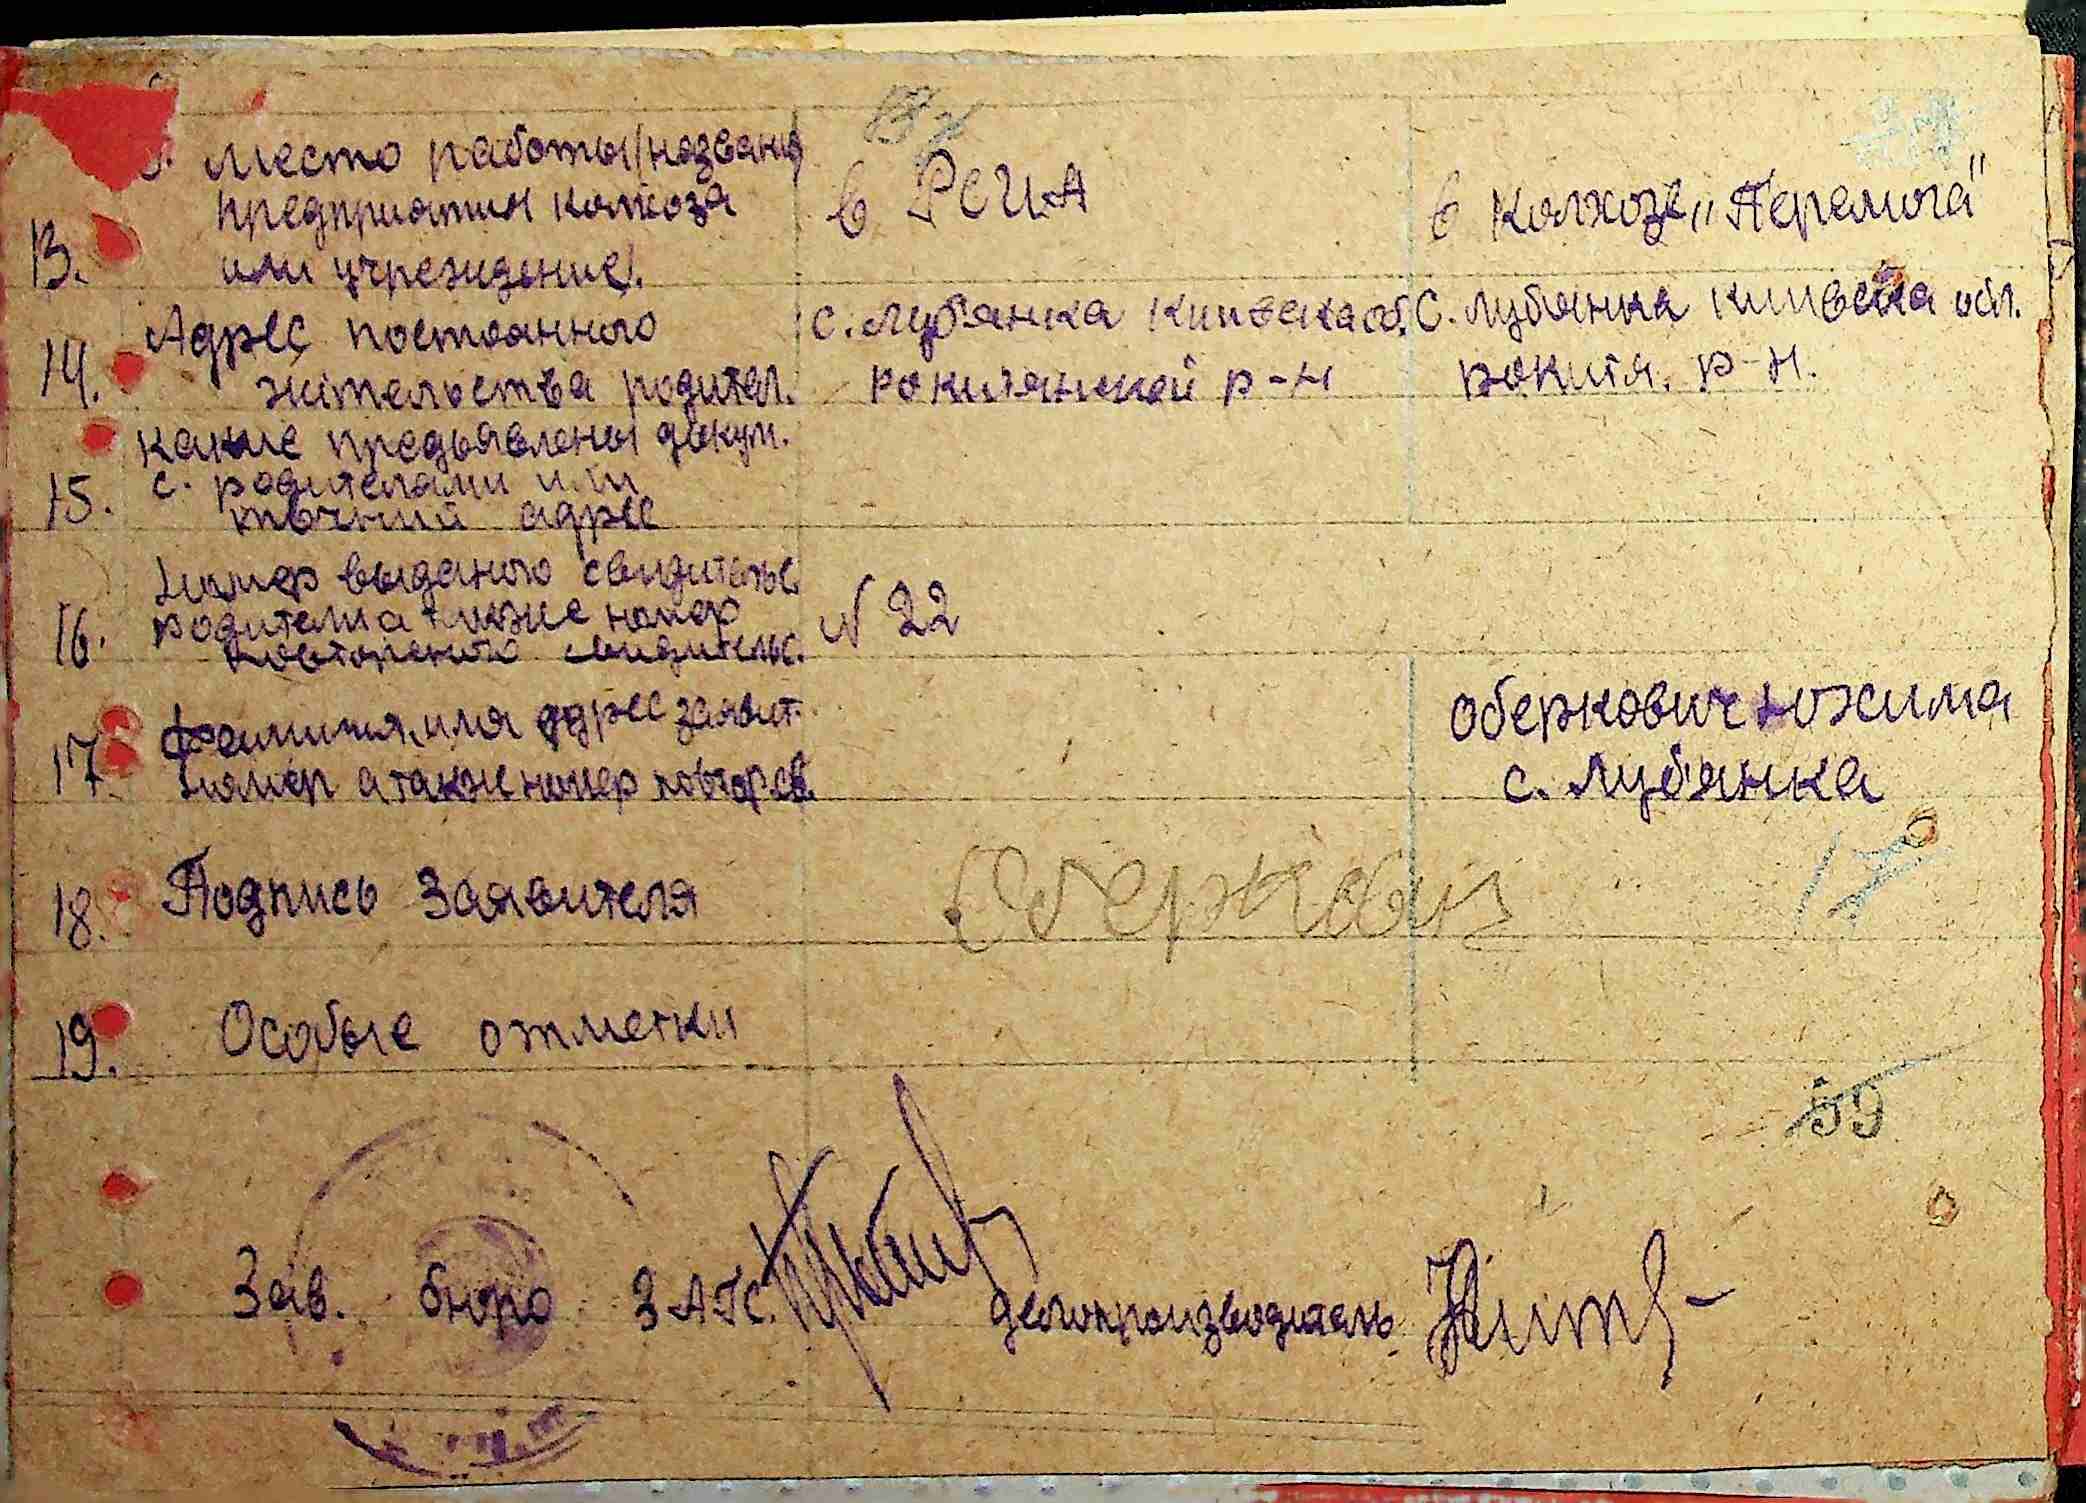 13. Место работы (названия
предприятия колхоза
или учреждение).
в РСИА
в колхозе „Перемога"
14. Адрес постоянного
жительства родител.
с. Луб'янка Киивска об.
рокитянской р-н
с. Лубянка Киивска обл.
рокитя. р-н.
15. какие предьявлены докум.
с. родителями или
точний адрес
16. Номер выданого свидительс
родителям а также номер
повторенного свидительс.
N 22
17. Фамилия, имя адрес заявит.
номер а также номер повтор.св.
Оберкович Южима
с. Луб'янка
18. Подпись Заявителя
Оберкович
17
19. Особые отметки
59
Зав. бюро ЗАГС.
делопроизводитель